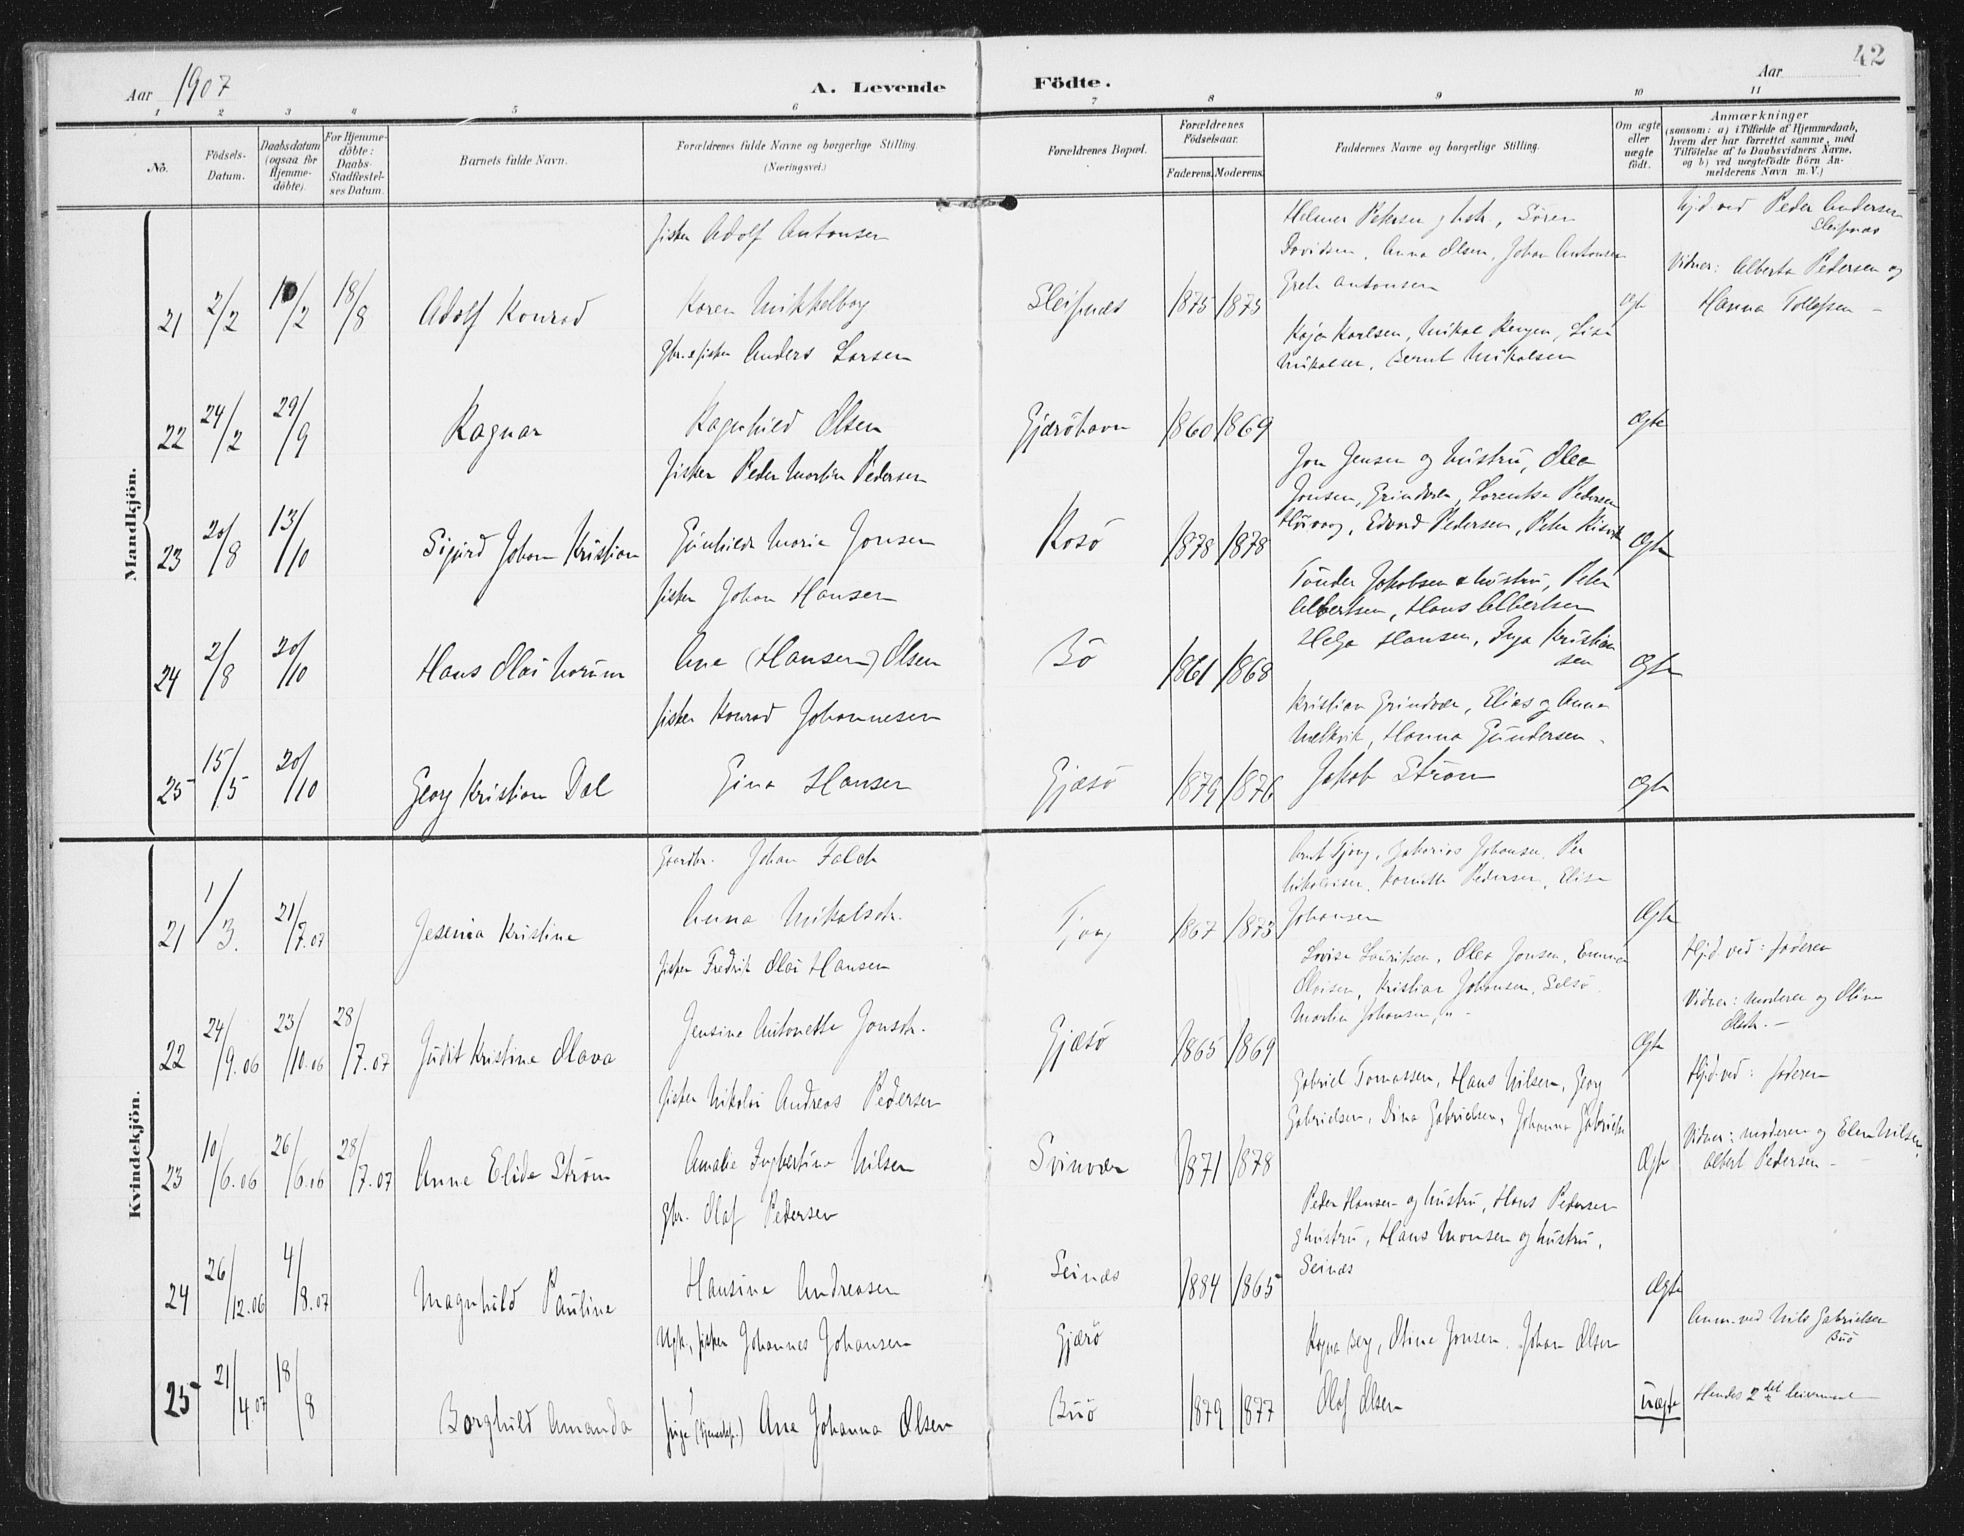 42
Aar 1907
A. Levende
Födte.
Aar
1 2 3 4 5 6 7 8 9 10 11
No.
Födsels-
Datum.
Daabsdatum
(ogsaa for
Hjemme-
döbte).
For Hjemme-
döbte:
Daabs-
Stadfæstel-
ses Datum.
Barnets fulde Navn.
Forældrenes fulde Navne og borgerlige Stilling.
(Næringsvei.)
Forældrenes Bopæl.
Forældrenes
Födselsaar.
Faderens. Moderens.
Faddernes Navne og borgerlige Stilling.
Om ægte
eller
uægte
födt.
Anmærkninger
(saasom: a) i Tilfælde af Hjemmedaab,
hvem der har forrettet samme, med
Tilföielse af to Daabsvidners Navne,
og b) ved uægtefödte Börn An-
melderens Navn m. V.)
Mandkjön.
fisker Adolf Antonsen
Helmer Petersen og hstr., Sören
Hjd. ved Peder Andersen
Sleipnes
Davidsen, Anna Olsen, Johan Antonsen
Vidner: Alberta Pedersen og
Grete Antonsen
21 2/2 10/2 18/8 Adolf Konrad Karen Mikkelborg Sleipnes 1875 1875 ægte Hanna Tollefsen –
gbr. & fisker Anders Larsen
Kaja Karlsen, Mikal Lisa
Mikalsen, Bernt Mikalsen
22 24/2 29/9 Ragnar Ragnhild Olsen Gjæröhavn 1860 1869 Ægte
fisker Peder Martin Pedersen
Jon Jensen og hustru, Olea
Jonsen, Grindvær, Lorentse Pedersen
23 20/8 13/10 Sigurd Johan Kristian Gunhilde Marie Jonsen Rosö 1878 1878 Edvard Pedersen, Peter Ægte
fisker Johan Hansen
Tönder Jakobsen & hustru, Peter
Albertsen, Hans Albertsen
24 2/8 20/10 Hans Olai Ane (Hansen) Olsen Bö 1861 1868 Helga Hansen, Inga Kristian
sen Ægte
fisker Konrad Johannesen
Kristian Grindvær, Elias og Anna
Hanna Gundersen.
25 15/5 20/10 Georg Kristian Dal Gina Hansen Gjæsö 1879 1876 Jakob Ström ægte
Kvindekjön.
Gaardbr. Johan Falch
Arnt Tjong, Johansen, Per
Nikolaisen, Pedersen, Elise
21 1/3. 21/7.07 Jesenia Kristine Anna Mikalsdtr. Tjong 1867 1875 Johansen Ægte
fisker Fredrik Olai Hansen
Lovise Lauritsen, Olea Jonsen, Emma
Hjd. ved: faderen
Olaisen, Kristian Johansen, Selsö.
Vidner: moderen og Oline
Olsdtr. –
22 24/9.06 23/10.06 28/7.07 Judit Kristine Olava Jensine Antonette Jonsdtr. Gjæsö 1865 1869 Martin Johansen, Ægte
fisker Nikolai Andreas Pedersen
Gabriel Tomassen, Hans Nilsen, Georg
Hjd. ved: faderen
Gabrielsen, Dina Gabrielsen, Johanna Gabrielsen
Vidner: moderen og Elen Nilsen,
23 10/6.06 26/6.06 28/7.07 Anne Elide Ström Amalie Ingbertine Nilsen Svinvær 1871 1878 Ægte Albert Pedersen –
gbr. Olaf Pedersen
Peder Hansen og hustru, Hans Pedersen
og hustru, Hans Monsen og hustru,
Seinæs
24 26/12.06 4/8.07 Magnhild Pauline Hansine Andreasen Seinæs 1884 1865 Ægte
Ugk., fisker Johannes Johansen Gjærö
Ragna Berg, Oline Jonsen, Johan Olsen
Anm. ved Nils Gabrielsen
Buö
25 21/4.07 18/8 Borghild Amanda pige Ane Johanna Olsen Buö 1879 1877 Olaf Olsen uægte Hendes 2det leiermaal